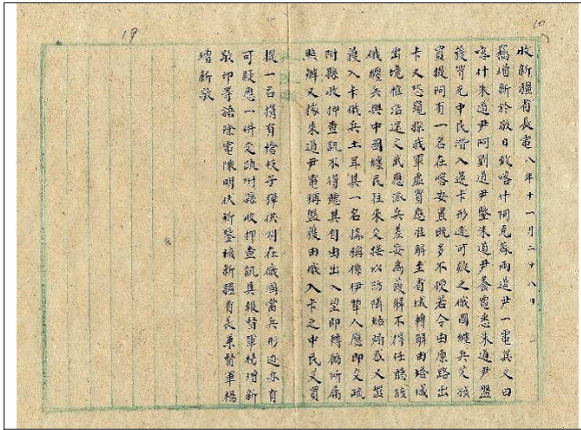 收新疆省長電 八年十一月二十八日
楊增新於敬日致喀什阿克蘇兩道尹一電其文曰
喀什朱道尹阿劉道尹鑒朱道尹養電悉朱道尹盤
獲冒充中民潛入邊卡形迹可疑之俄國纏兵艾孩
買提阿有一名在喀安置既多不便若令由原路出
卡又恐窺探我軍虛實應准解至省城轉解由塔城
出境惟沿途文武應派兵妥為護解不得任聽該
俄纏兵與中國纏民往來交接以防隣賠煽惑又盤
獲入卡俄兵土耳其一名據稱係伊犂人應即交疏
附縣收押查訊不得聽其自由出入望即轉飭所屬
照辦又據朱道尹電稱盤獲由俄入卡之中民艾買
提一名攜有槍枝子彈供詞在俄國當兵形迹亦有
可疑應一併交疏附縣收押查訊具報督軍楊增新
敬印等語除電陳明伏祈鑒核新疆省長兼督軍楊
增新敬
19
10